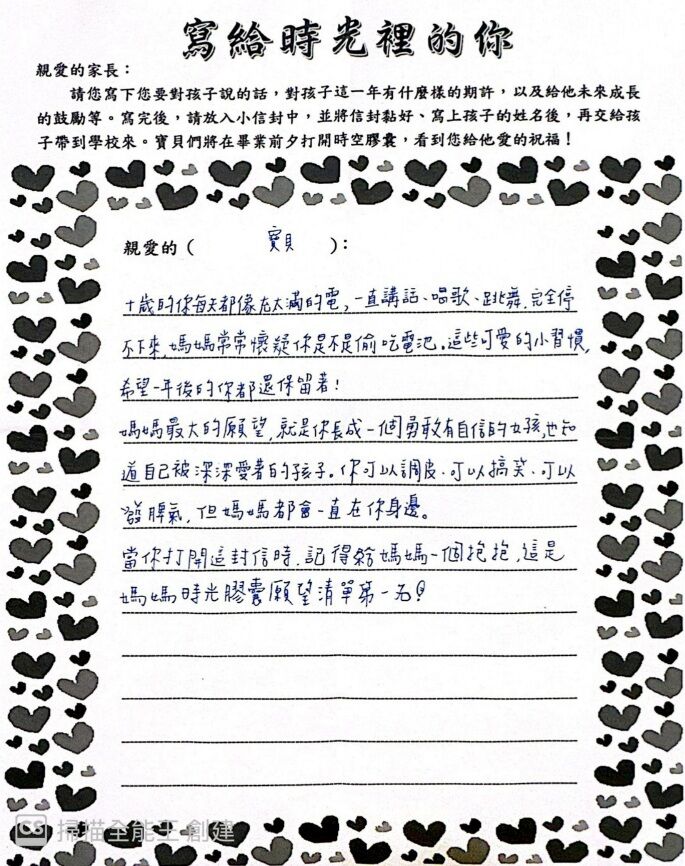 寫給時光裡的你
親愛的家長：
請您寫下您要對孩子說的話，對孩子這一年有什麼樣的期許，以及給他未來成長
的鼓勵等。寫完後，請放入小信封中，並將信封黏好、寫上孩子的姓名後，再交給孩
子帶到學校來。寶貝們將在畢業前夕打開時空膠囊，看到您給他愛的祝福！
親愛的（ 寶貝 ）：
十歲的你每天都像充太滿的電,一直講話、唱歌、跳舞,完全停
不下來,媽媽常常懷疑你是不是偷吃電池。這些可愛的小習慣,
希望一年後的你都還保留著!
媽媽最大的願望,就是你長成一個勇敢有自信的女孩,也知
道自己被深深愛著的孩子。你可以調皮、可以搞笑、可以
發脾氣,但媽媽都會一直在你身邊。
當你打開這封信時,記得給媽媽一個抱抱,這是
媽媽時光膠囊願望清單第一名!
CS 掃描全能王 創建